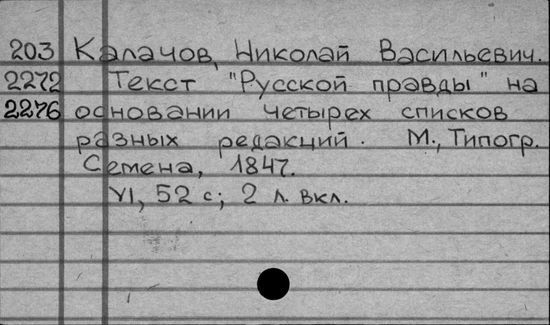 203 Калачов, Николай Васильевич.
2272 Текст "Русской правды" на
2276 основании четырех списков
разных редакций. М., Типогр.
Семена, 1847.
VI, 52 с; 2 л. вкл.